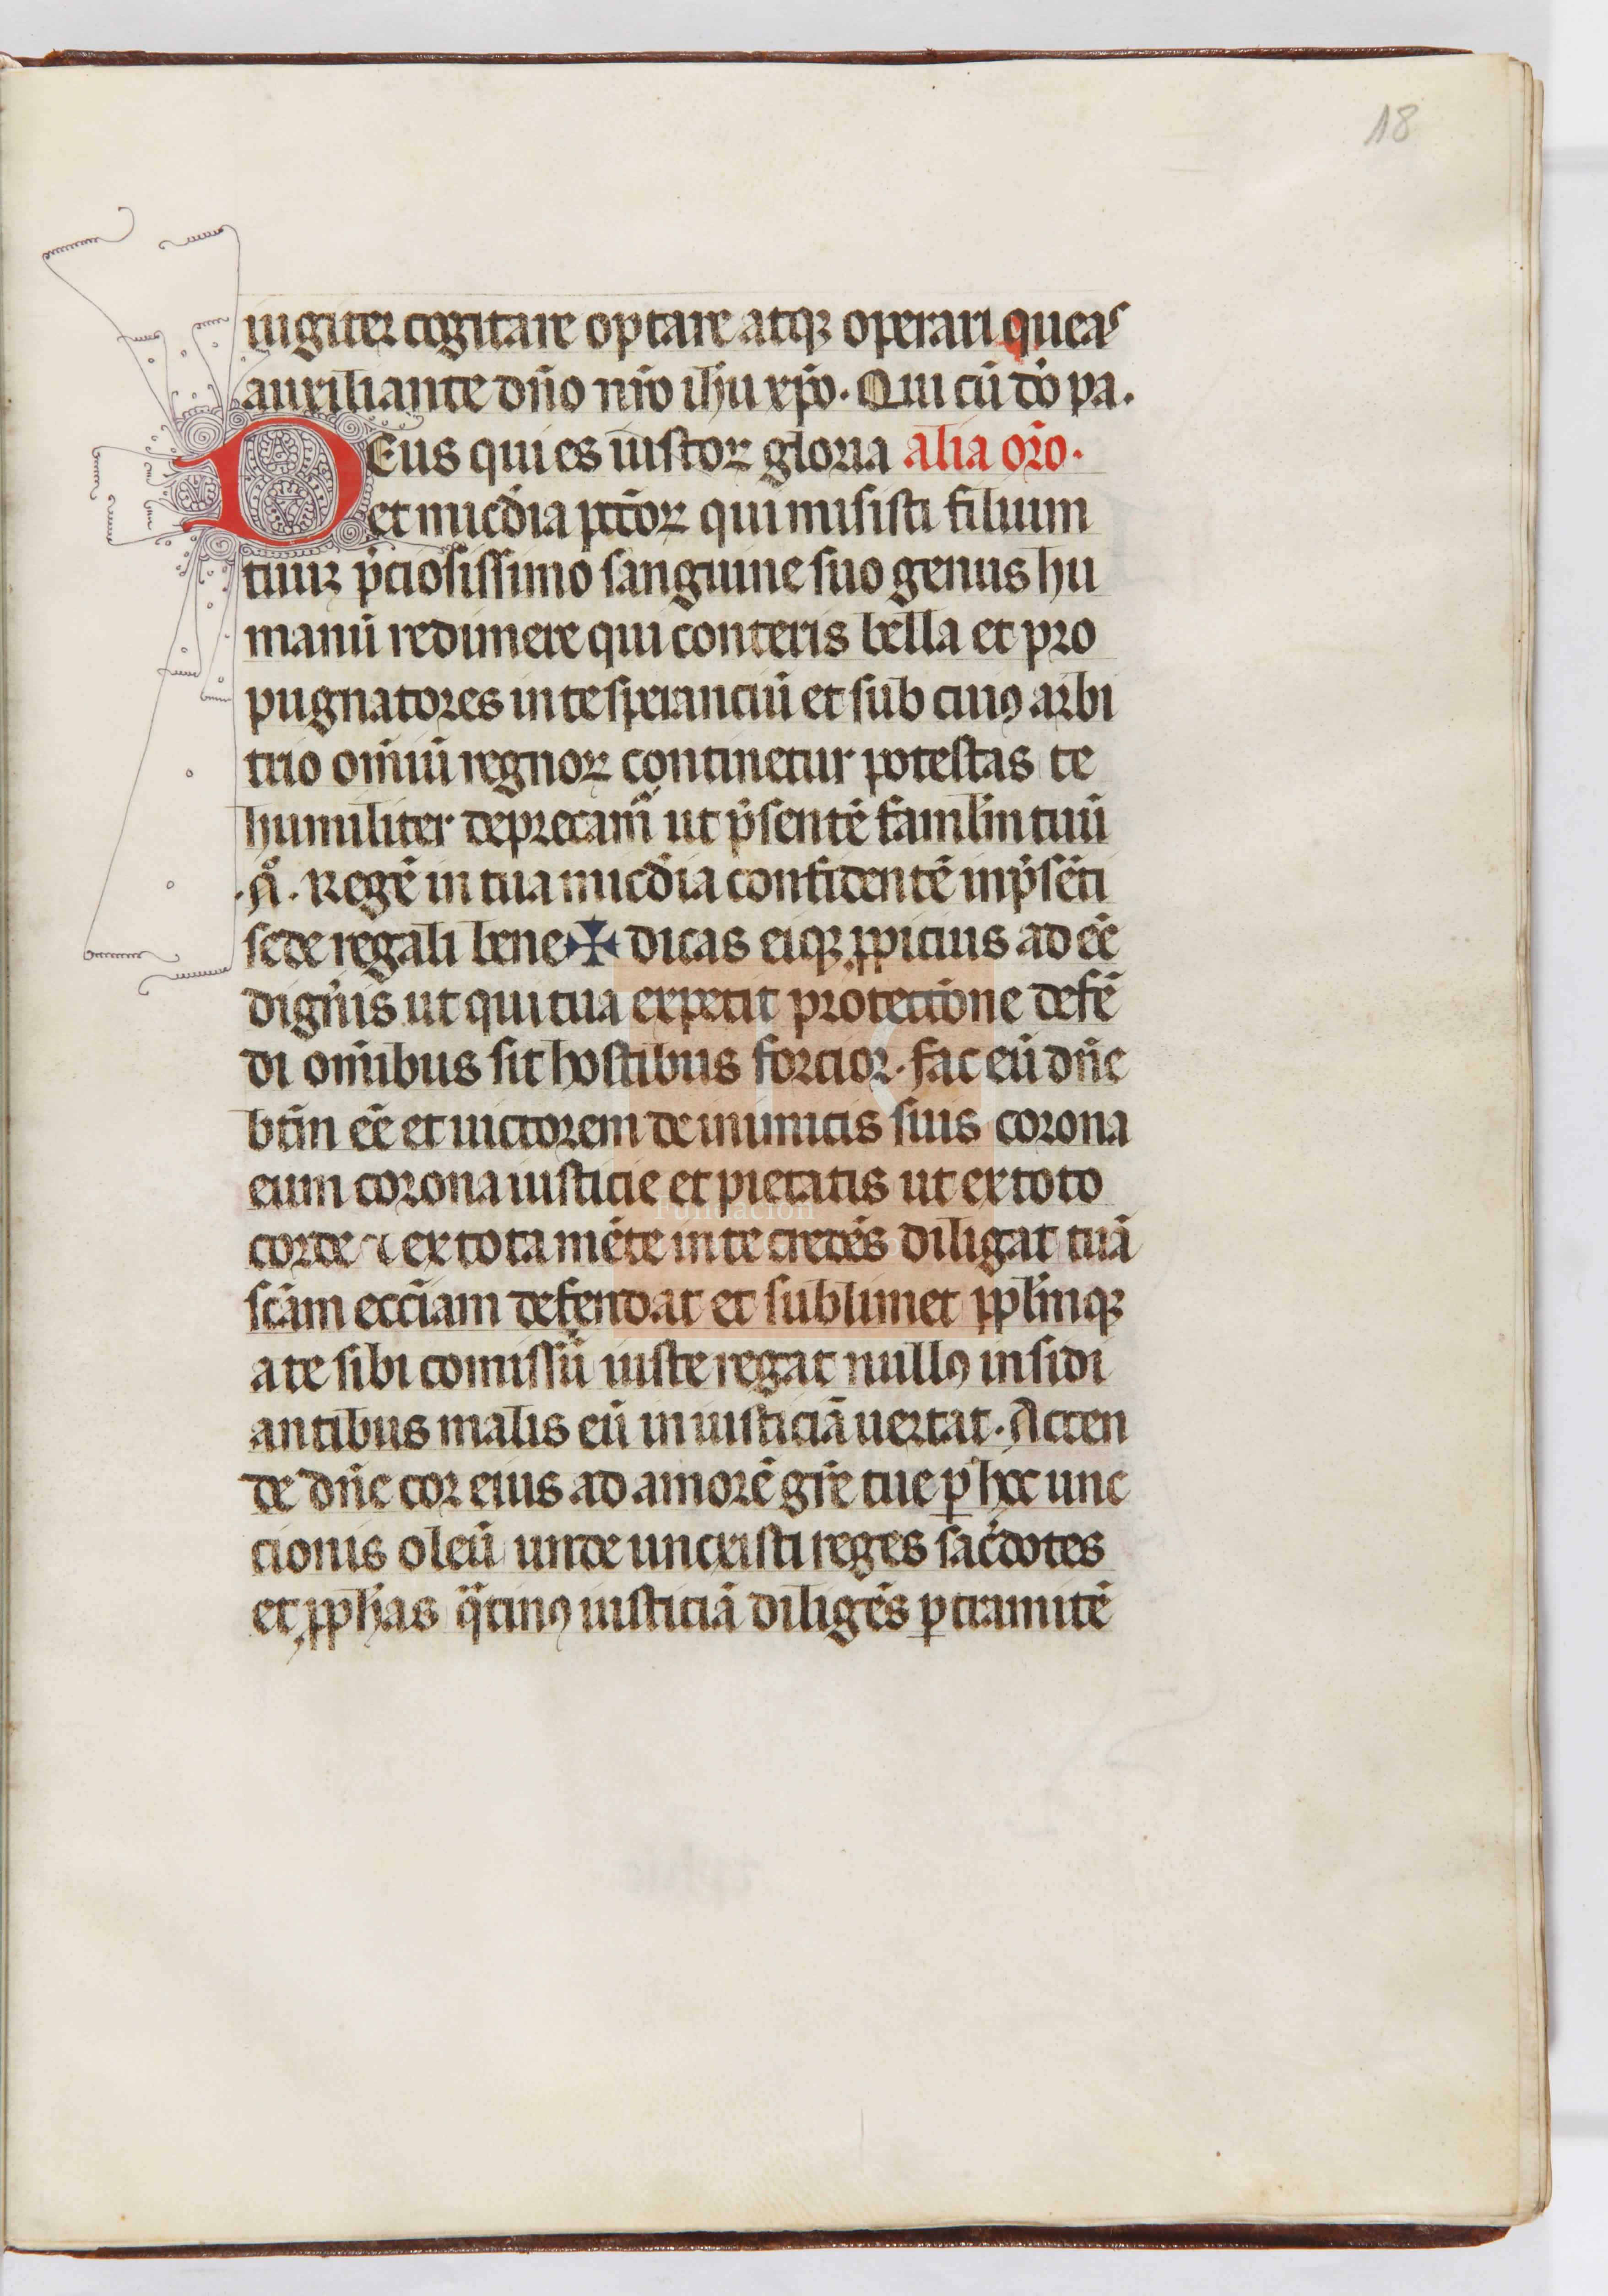 18
iugiter cogitare optare atqꝫ operari queas
auxiliante dño nr̃o ih̃u xp̃o. Qui cũ dõ pa.
DEus qui es iustoꝝ gloria alia or̃o.
et mic̃dia pc̃toꝝ qui misisti filium
tuuꝫ p̃ciosissimo sanguine suo genus hu
manũ redimere qui conteris bella et pro
pugnatores in te speranciũ et sub cuiꝰ arbi
trio om̃iũ regnoꝝ continetur potestas te
humiliter deprecam̃ ut p̃sentẽ famlm̃ tuũ
.A͂. Regẽ in tua mic̃dia confidentẽ in p̃sẽti
sede regali bene ✠ dicas eiqꝫ ꝓpicius adẽẽ
digñis ut qui tua expetit protectione defẽ
di om̃ibus sit hostibus forcior. fac eũ dñe
btm̃ ẽẽ et uictorem de inimicis suis corona
eum corona iusticie et pietatis ut ex toto
corde ⁊ ex tota mẽte in te credẽs diligat tuã
sc̃am ecc̃iam defendat et sublimet pplm̃qꝫ
a te sibi comissũ iuste regat nullꝰ insidi
antibus malis eũ in iusticiã uertat. Accen
de dñe cor eius ad amorẽ gr̃e tue ꝑ hoc unc
cionis oleũ unde uncxisti reges sac̃dotes
et ꝓph̃as q̃tinꝰ iusticiã diligẽs ꝑ tramitẽ
Fundación